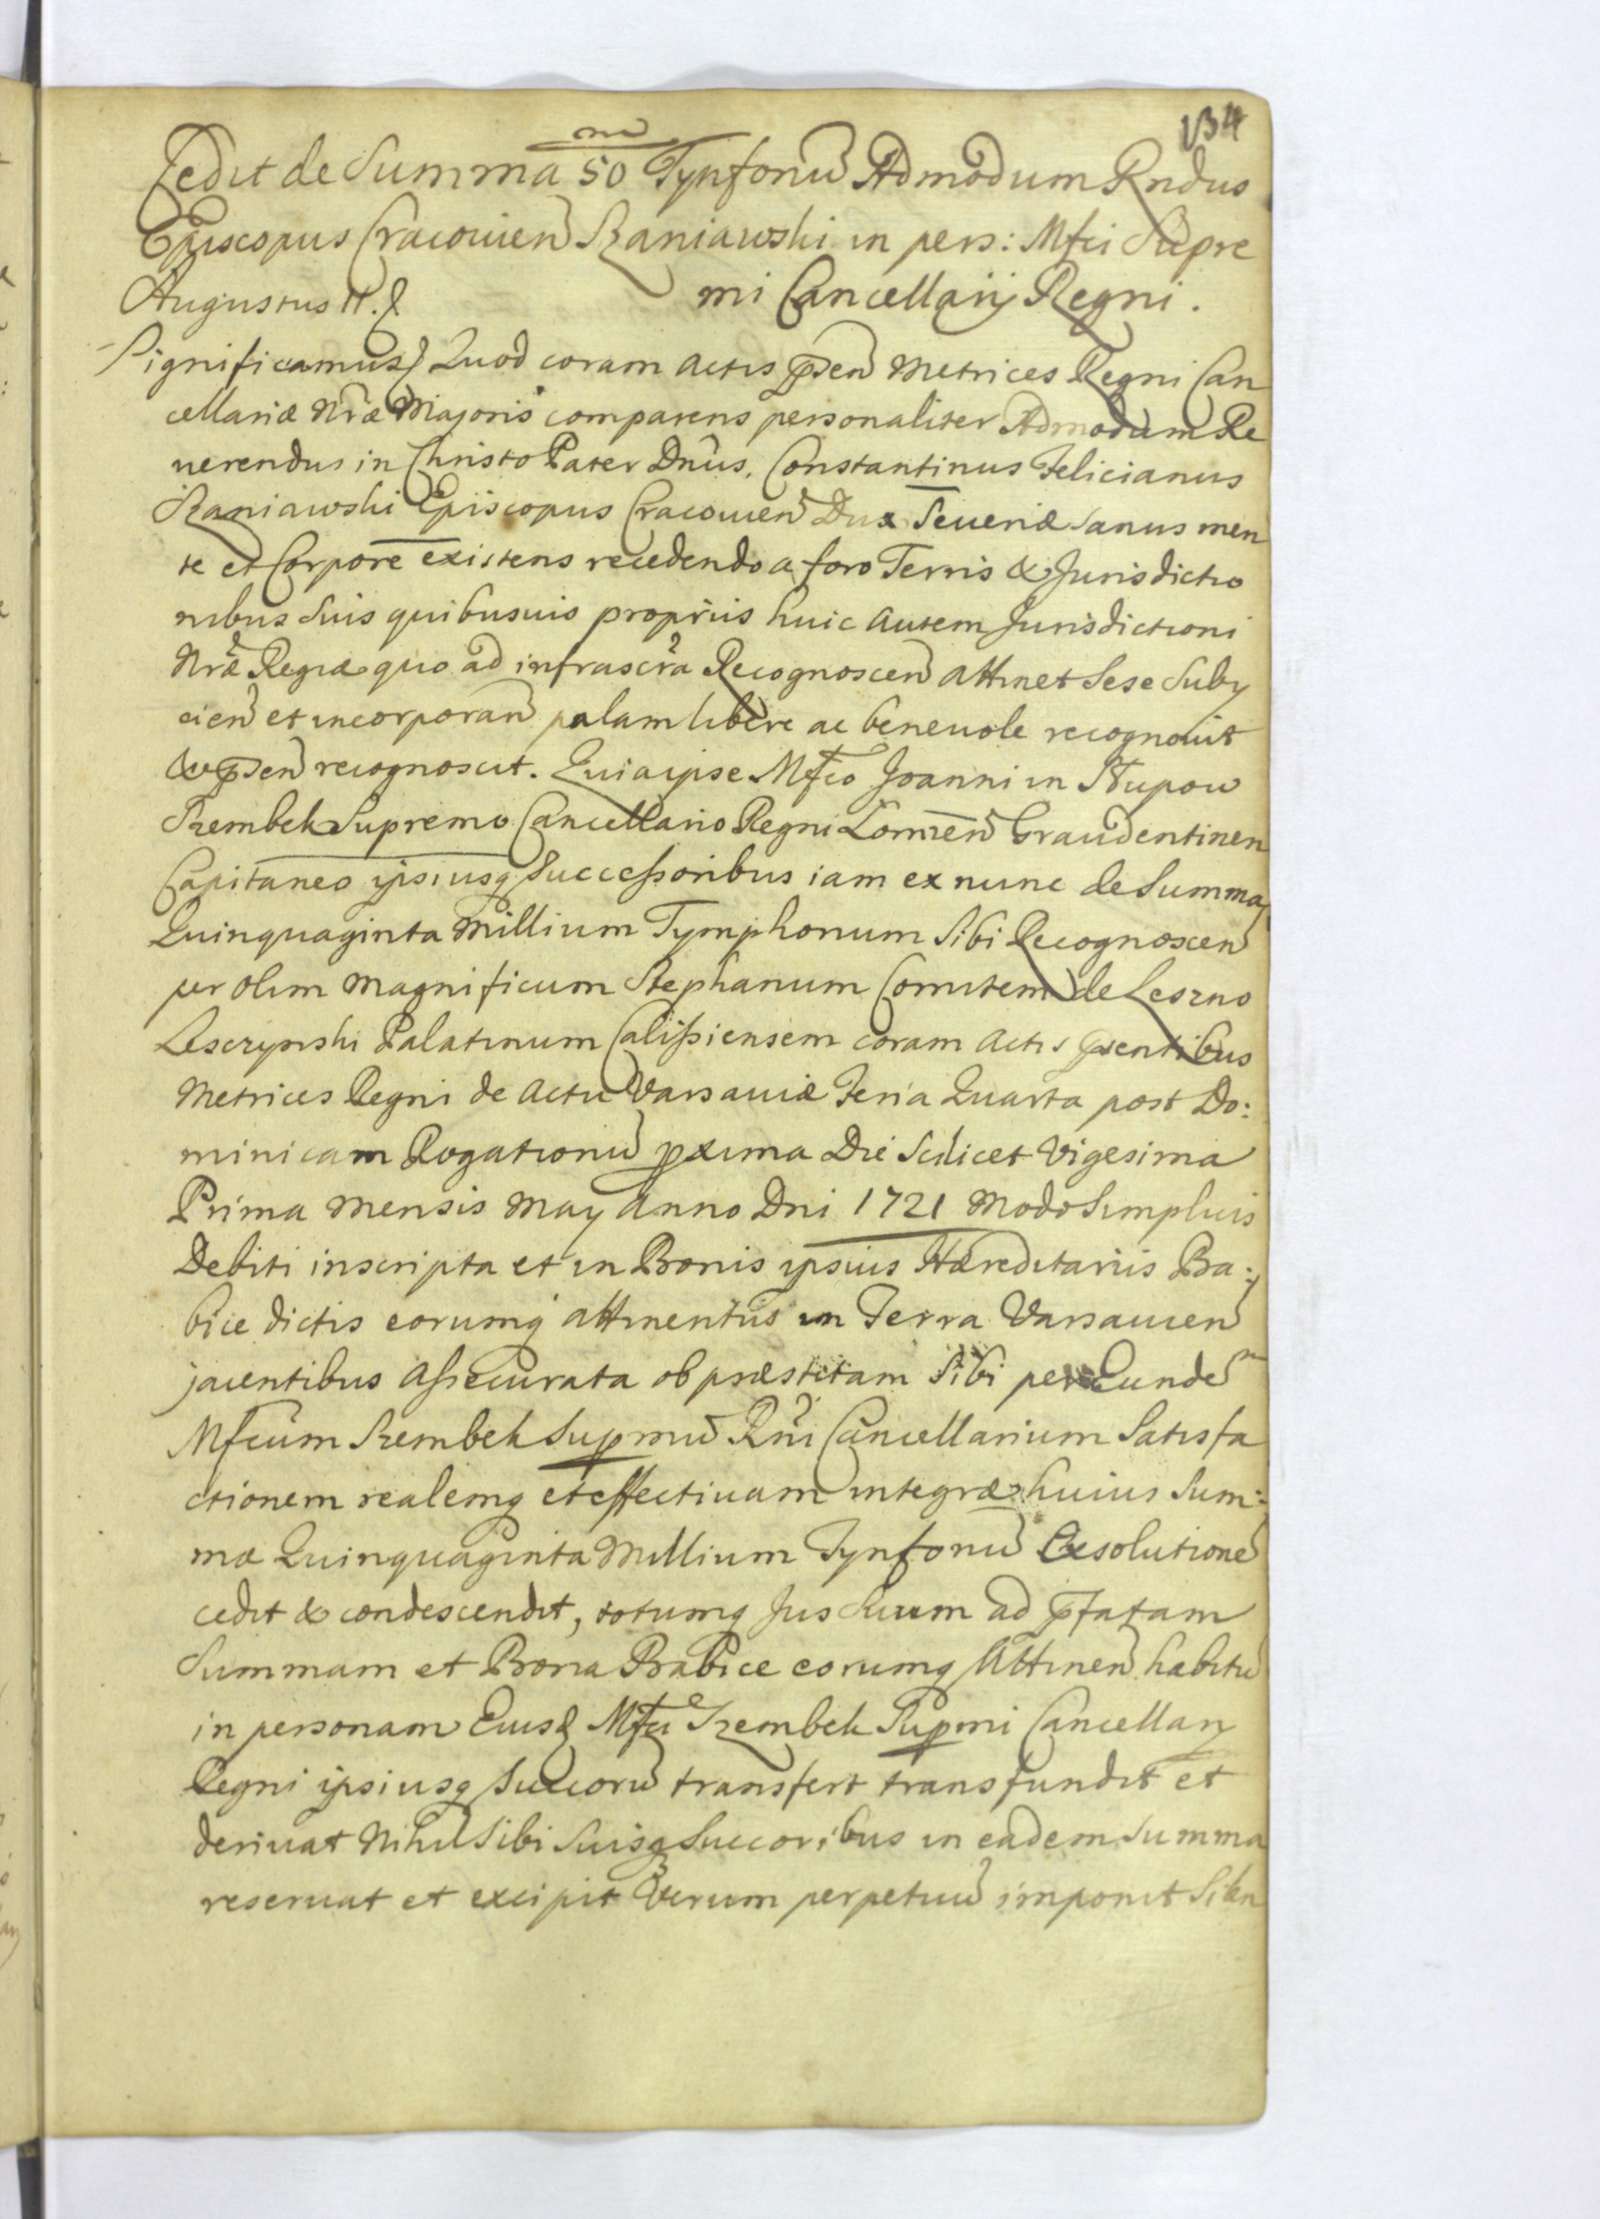 134
Cedit de Summa 50 m̃ Tynfonũ Admodum Rndus
Episcopus Cracouieñ Szaniawski in pers: Mfci Supre
mi Cancellarij Regni.
Augustus II.
Significamus Quod coram Actis p̃señ Metrices Regni Can
cellariæ Nræ Majoris comparens personaliter Admodum Re
uerendus in Christo Pater Dñus. Constantinus Felicianus
Szaniawski Episcopus Cracouieñ Dux Seueriæ Sanus men
te et Corpore existens recedendo a foro Terris & Jurisdictio
nibus Suis quibusuis proprijs huic Autem Jurisdictioni
Nræ Regiæ quo ad infrascr̃a Recognosceñ Attinet Sese Subij
cieñ et incorporañ palam libere ac beneuole recognouit
& p̃señ recognoscit. Quia ipse Mfco Joanni in Słupow
Szembek Supremo Cancellario Regni Lomzeñ Graudentinen
Capitaneo ipsiusq Successoribus iam ex nunc de Summa
Quinquaginta Millium Tymphonum Sibi Recognosceñ
per olim Magnificum Stephanum Comitem de Leszno
Lesczynski Palatinum Calissiensem coram Actis p̃sentibus
Metrices Regni de Actu Varsauiæ Feria Quarta post Do:
minicam Rogationũ pxima Die Scilicet Vigesima
Prima Mensis May Anno Dni 1721 Modo Simplicis
Debiti inscripta et in Bonis ipsius Hæreditarijs Ba:
bice dictis eorumq attinentijs in Terra Varsauieñ
jacentibus Assecurata ob præstitam Sibi per Eundem
Mfcum Szembek Supmũ Rñi Cancellarium Satisfa
ctionem realemq et effectiuam integræ huius Sum:
mæ Quinquaginta Millium Tynfonũ Exsolutionẽ
cedit & condescendit, totumq Jus Suum ad p̃fatam
Summam et Bona Babice eorumq Attineñ habitũ
in personam Eiusd Mfci Szembek Supmi Cancellarij
Regni ipsiusq Succorũ transfert transfundit et
deriuat Nihil Sibi Suisq Succoribus in eadem Summa
reseruat et excipit Verum perpetuũ imponit Silen